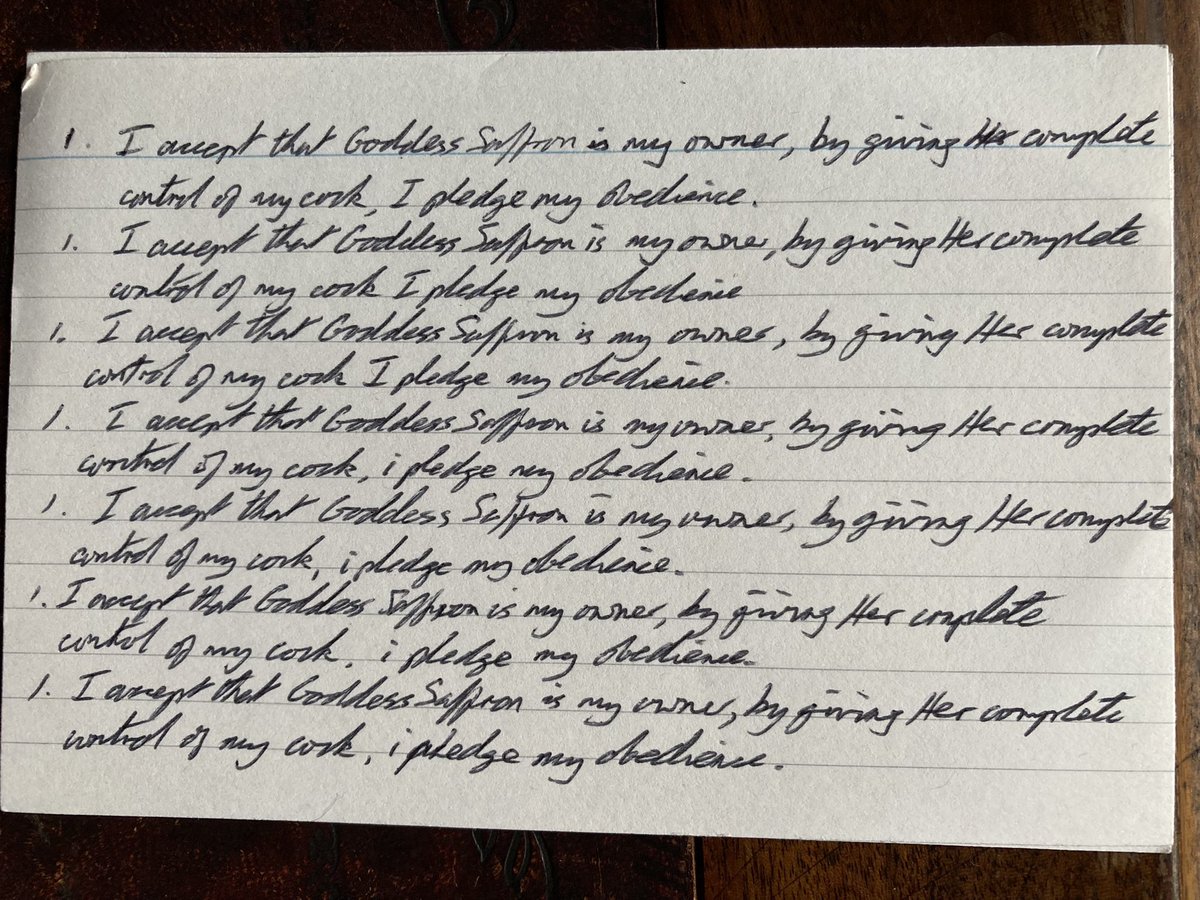 1. I accept that Goddess Saffron is my owner, by giving Her complete
control of my cock, I pledge my obedience.
1. I accept that Goddess Saffron is my owner, by giving Her complete
control of my cock I pledge my obedience
1. I accept that Goddess Saffron is my owner, by giving Her complete
control of my cock I pledge my obedience.
1. I accept that Goddess Saffron is my owner, by giving Her complete
control of my cock, i pledge my obedience.
1. I accept that Goddess Saffron is my owner, by giving Her complete
control of my cock, i pledge my obedience.
1. I accept that Goddess Saffron is my owner, by giving Her complete
control of my cock, i pledge my obedience.
1. I accept that Goddess Saffron is my owner, by giving Her complete
control of my cock, i pledge my obedience.